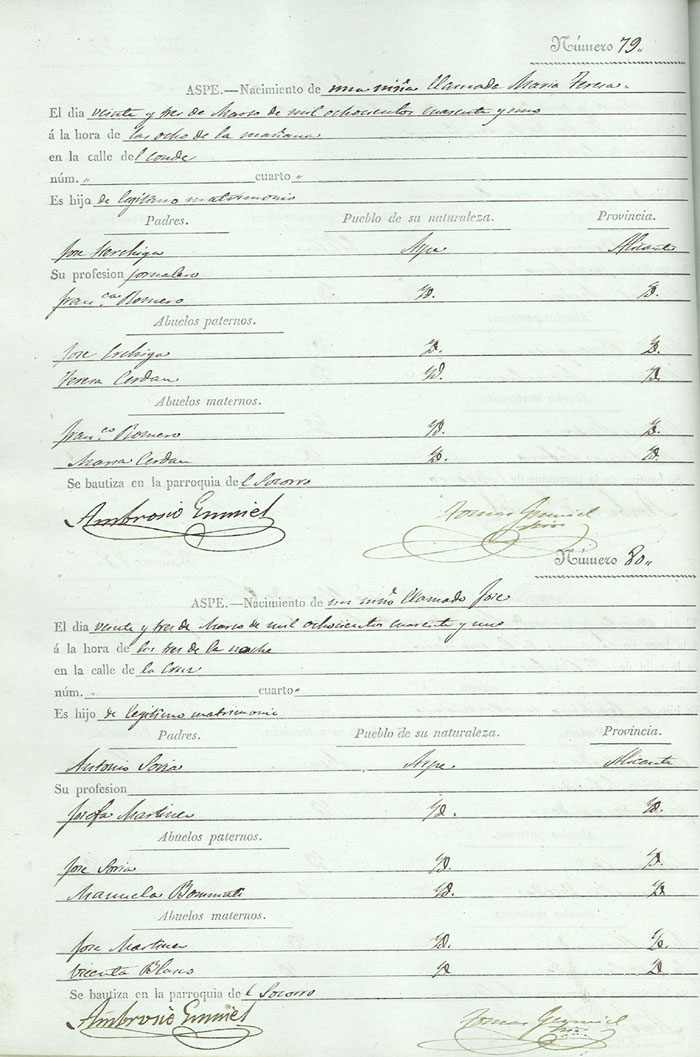 Número 79.
ASPE.—Nacimiento de una niña llamada Maria Teresa.
El dia veinte y tres de Marzo de mil ochocientos cuarenta y uno
á la hora de las ocho de la mañana
en la calle del Conde
núm. " cuarto "
Es hijo de legitimo matrimonio
Padres. Pueblo de su naturaleza. Provincia.
Jose Aspe Alicante
Su profesion jornalero
Fran.ca Romero Yd. Yd.
Abuelos paternos.
Jose Yd. Yd.
Teresa Cerdan Yd. Yd.
Abuelos maternos.
Fran.co Romero Yd. Yd.
Maria Cerdan Yd. Yd.
Se bautiza en la parroquia del Socorro
Ambrosio Gumiel
Tomas Gumiel
Número 80.
ASPE.—Nacimiento de un niño llamado Jose
El dia veinte y tres de Marzo de mil ochocientos cuarenta y uno
á la hora de las tres de la noche
en la calle de la Cruz
núm. " cuarto "
Es hijo de legitimo matrimonio
Padres. Pueblo de su naturaleza. Provincia.
Antonio Soria Aspe. Alicante
Su profesion
Josefa Martinez Yd. Yd.
Abuelos paternos.
Jose Soria Yd. Yd.
Manuela Yd. Yd
Abuelos maternos.
Jose Martinez Yd. Yd.
Vicenta Blasco Yd Yd
Se bautiza en la parroquia del Socorro
Ambrosio Gumiel
Tomas Gumiel